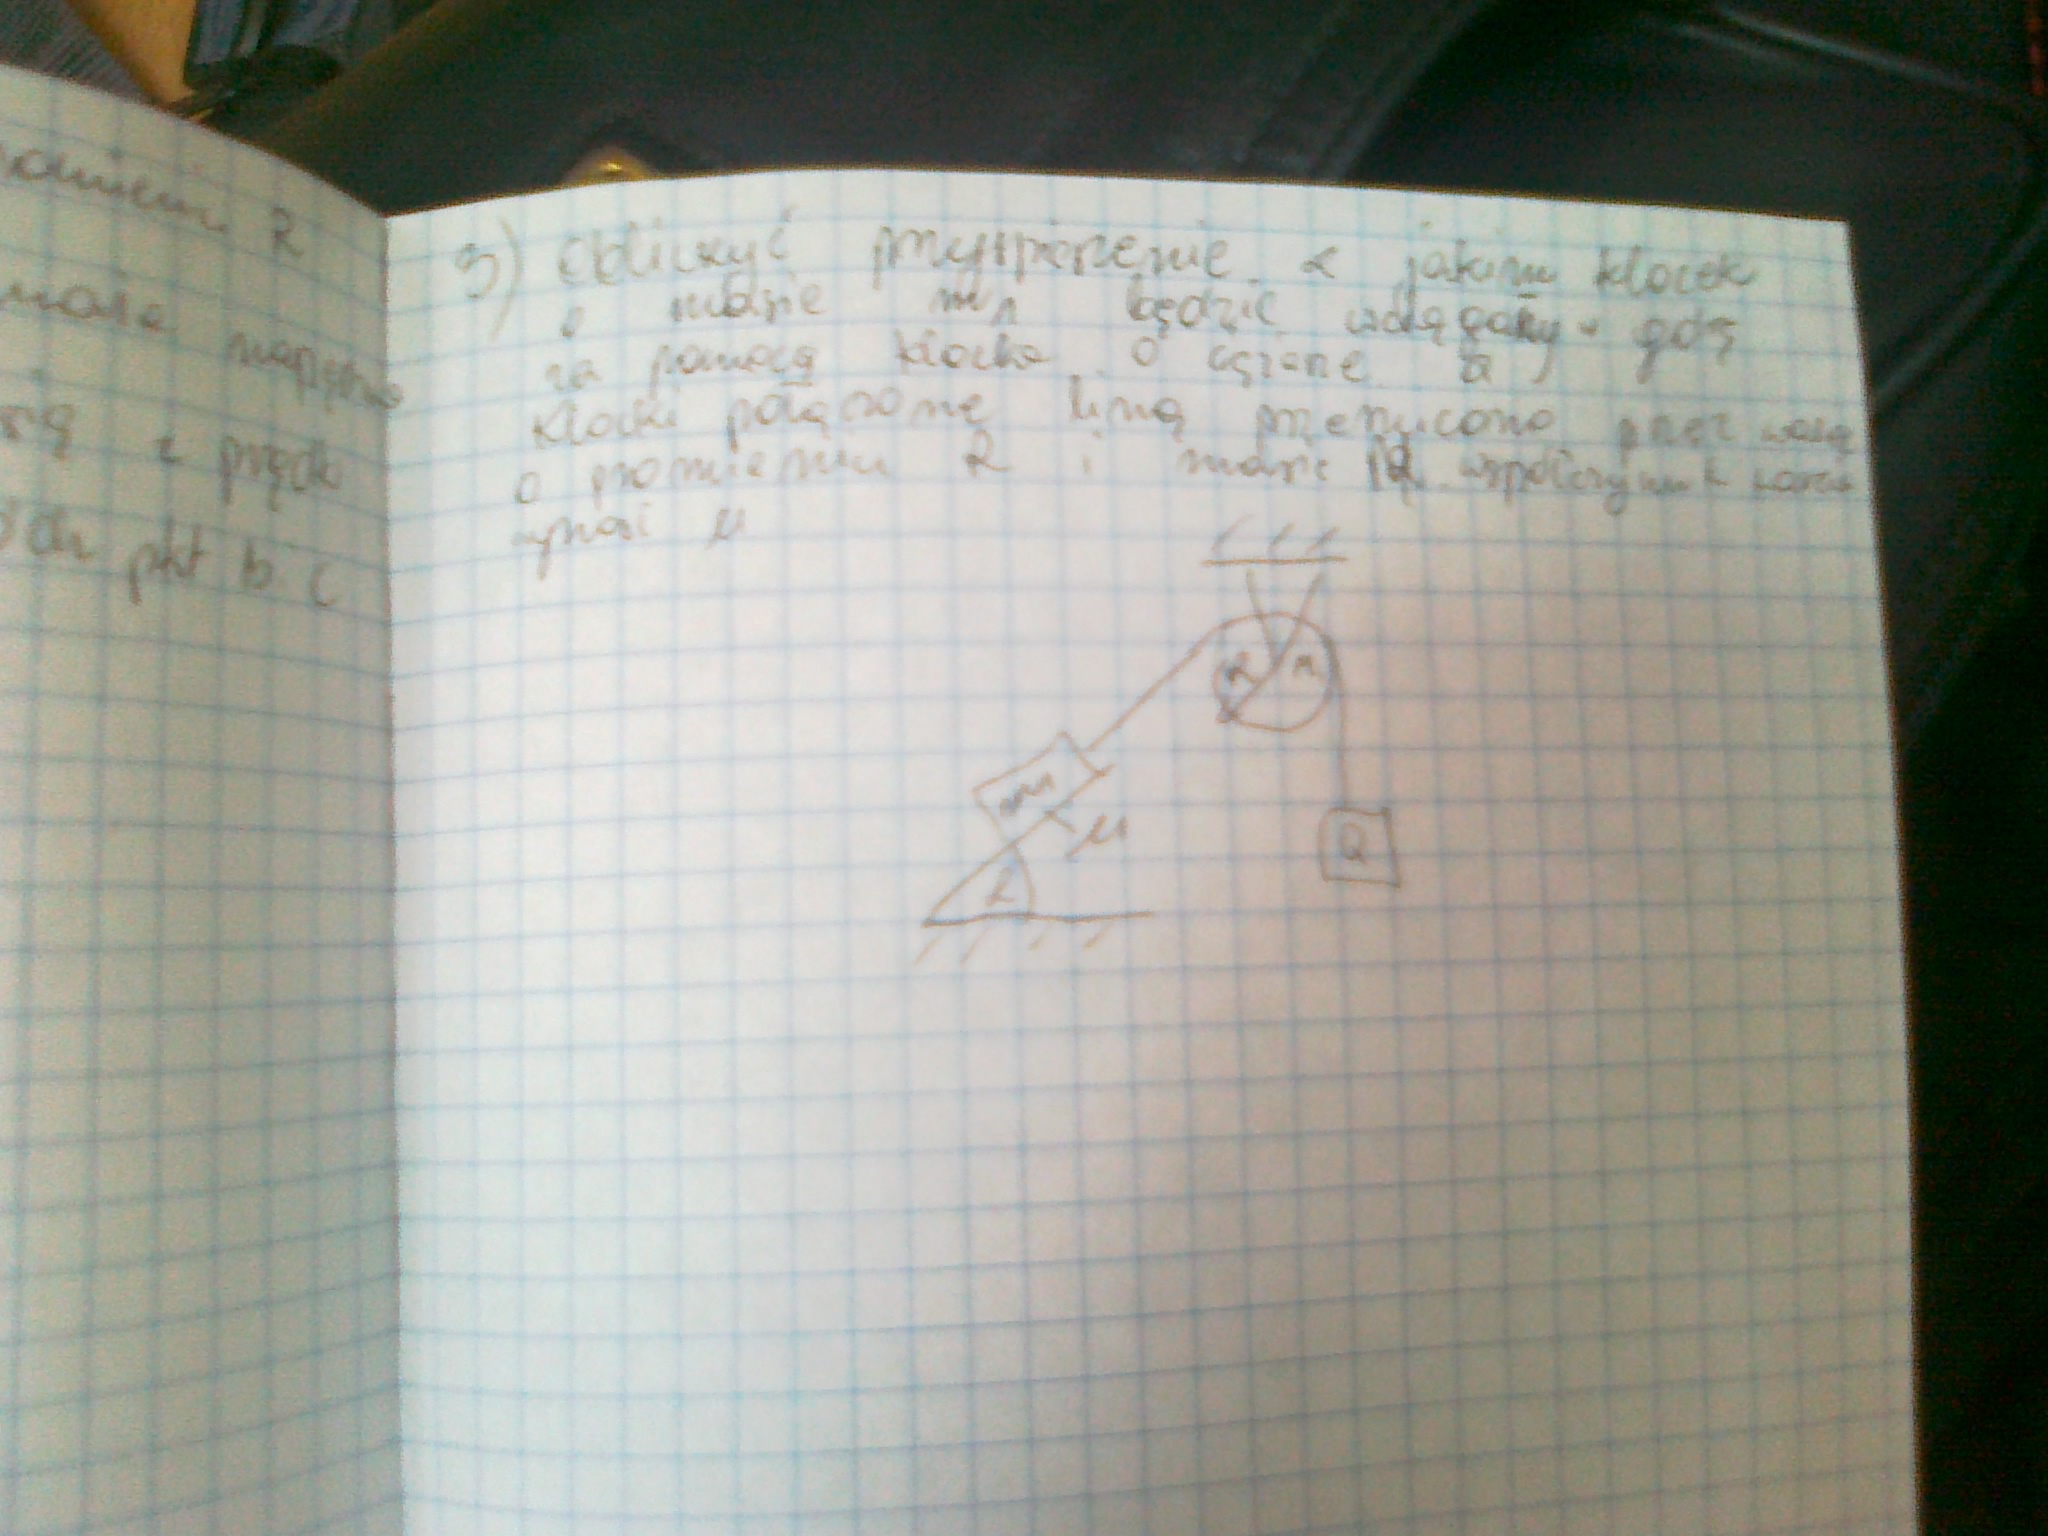 kamieniu R
masa napędu
są z prędk
dla pkt b i c
3) obliczyć przyspieszenie z jakim klocek
o masie m₁ będzie wciągany w górę
za pomocą klocka o ciężarze Q,
Klocki połączone liną przerzucono przez
o promieniu R i masie współczynnik tarcia
wynosi μ
R
m
μ
α
Q